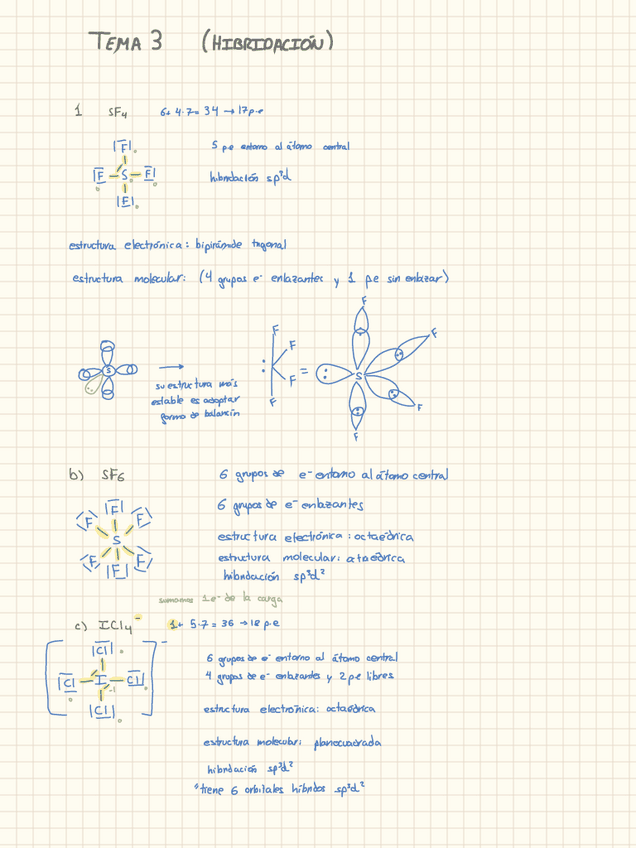 TEMA 3 (HIBRIDACIÓN)
1 SF4 6+ 4·7= 34 → 17 p.e
5 p e entorno al átomo central
|F|
|F – S – F|
|F|
hibridación sp³d
estructura electrónica: bipirámide trigonal
estructura molecular: (4 grupos e⁻ enlazantes y 1 pe sin enlazar)
S
→
su estructura más
estable es adoptar
forma de balancín
F
: F
F
F
=
F
F
: S
F
F
b) SF6 6 grupos de e⁻ entorno al átomo central
6 grupos de e⁻ enlazantes
|F|
F F
S
F F
|F|
estructura electrónica: octaédrica
estructura molecular: octaédrica
hibridación sp³d²
sumamos 1e⁻ de la carga
c) ICl4⁻ 1+ 5·7= 36 → 18 p e
|Cl|
|Cl – I – Cl|
-1
|Cl|
–
6 grupos de e⁻ entorno al átomo central
4 grupos de e⁻ enlazantes y 2 p e libres
estructura electrónica: octaédrica
estructura molecular: planocuadrada
hibridación sp³d²
*tiene 6 orbitales híbridos sp³d²